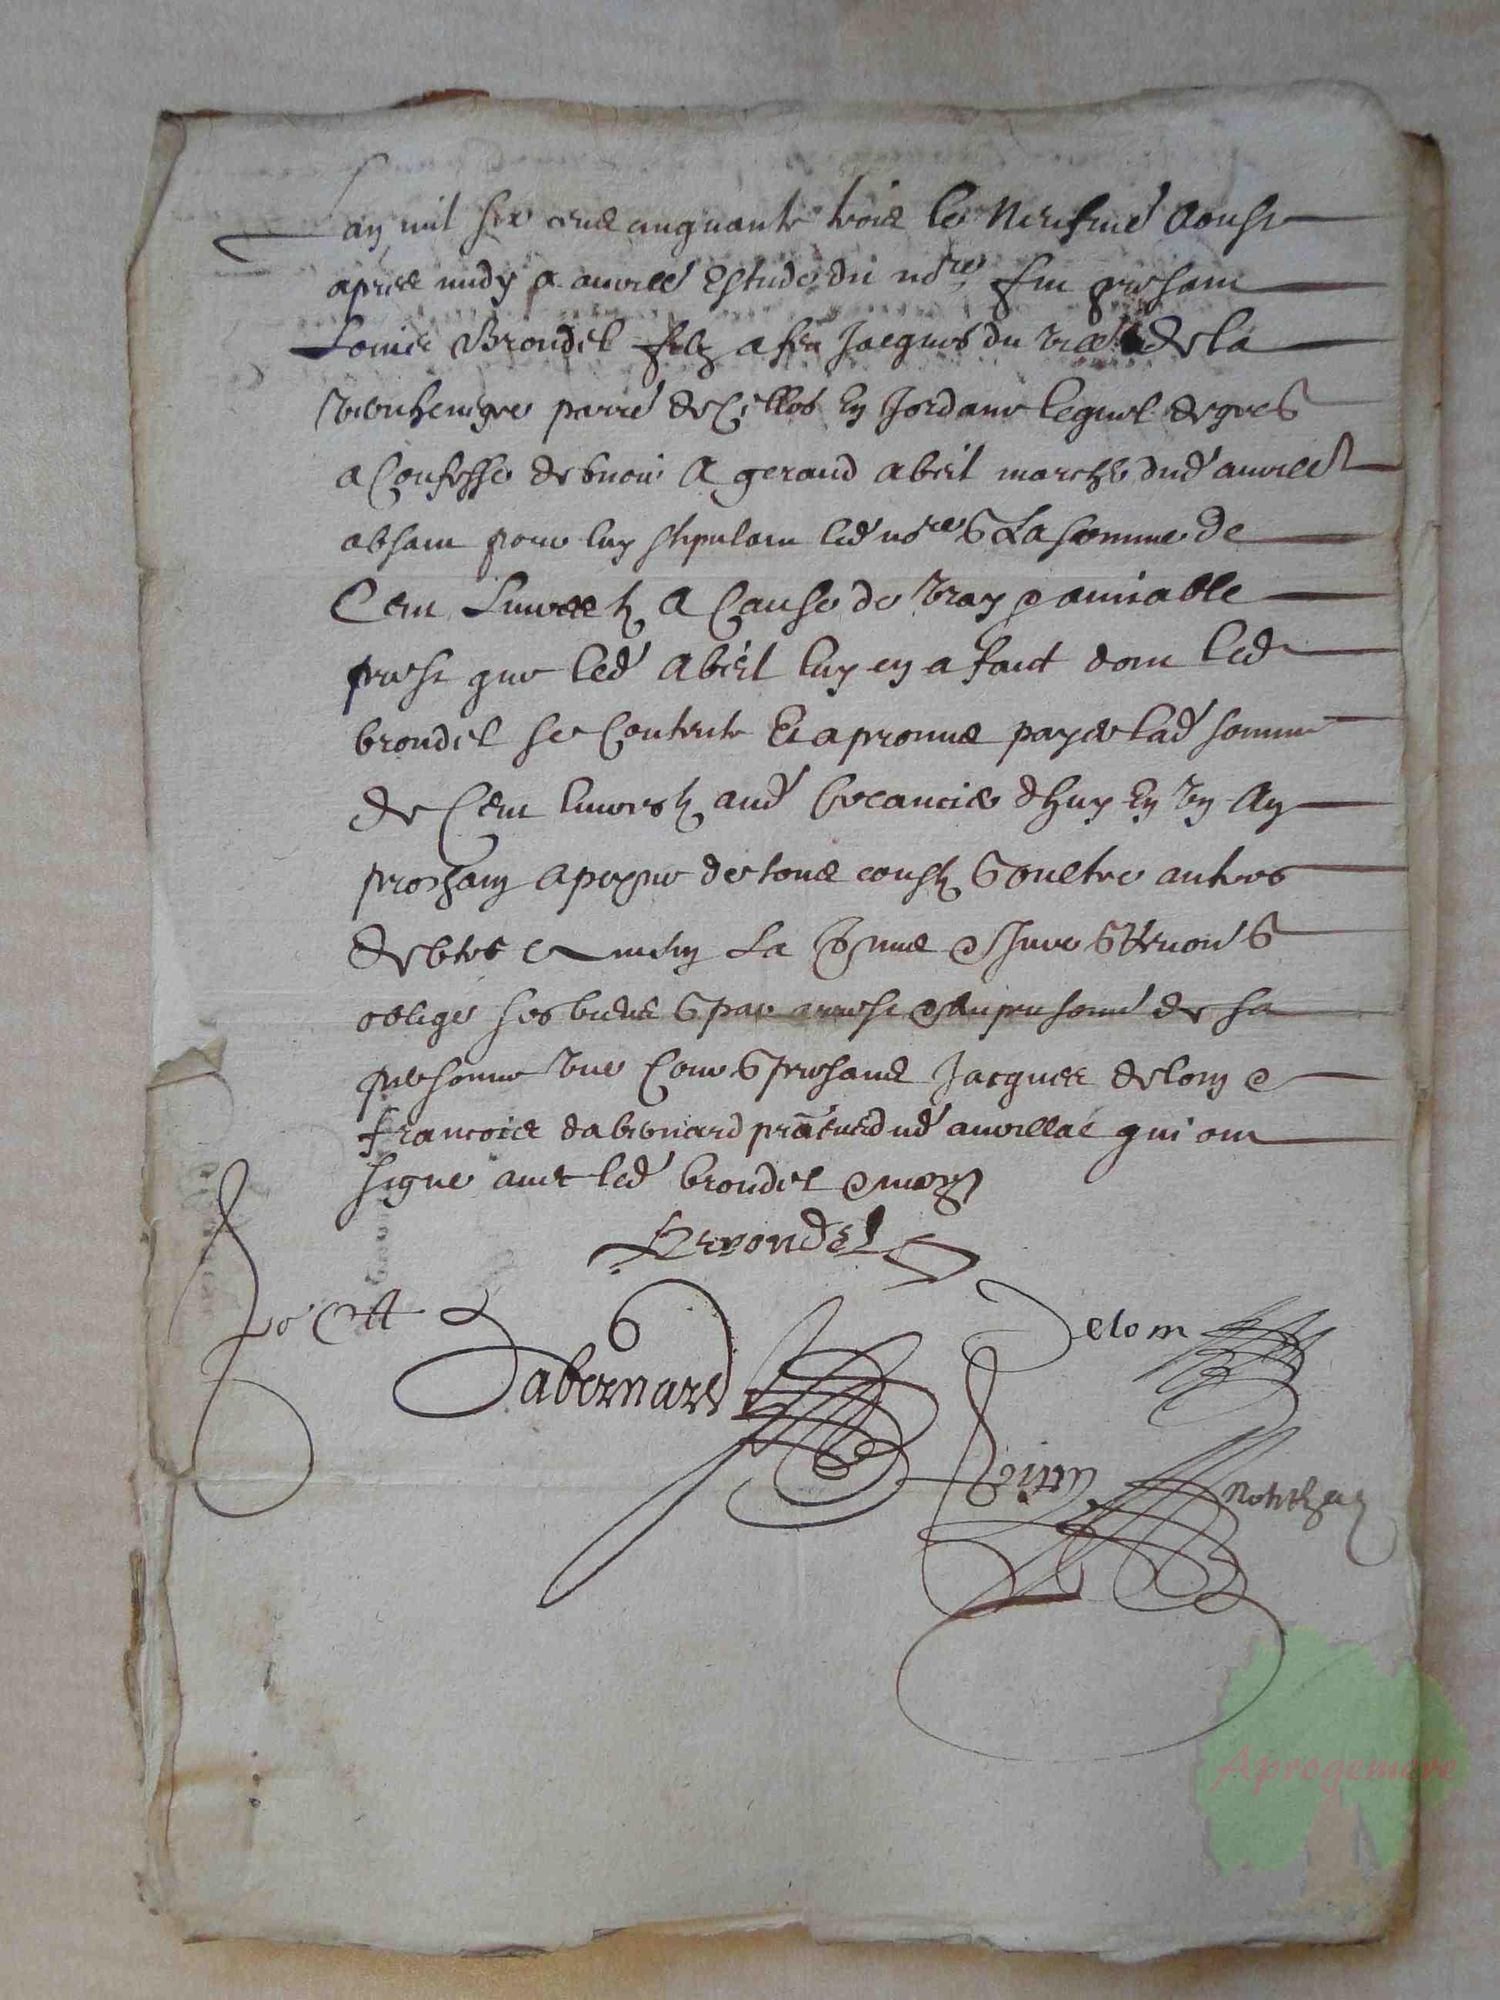 an mil six cens cinquante trois le neufme aoust
apres midy a aurillé estude du nore fut presant
Louis Brondel filz a feu Jacques du de la
parre de en Jordane lequel de gré &
a confessé debvoir a geraud abeil marcht dud aurille
absant pour luy stipulant led nore & La somme de
Cent Livres tz a cause de vray & amiable
prest que led abeil luy en a fait dont led
brondel se contente Et a promis payer lad somme
de Cent livres tz aud creancier dhuy en un an
prochain a peyne de tous coustz & oultre autres
debtes La &
oblige ses biens & par arrest & emprisonné de sa
personne presans Jacques delom &
francois dabernard pratciens dud aurillac qui ont
signé avec led brondel & moy
Brondel
Dabernard
Delom